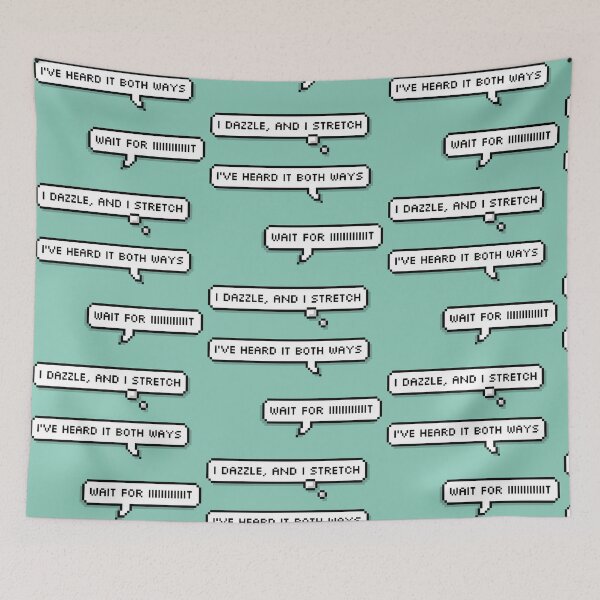 I'VE HEARD IT BOTH WAYS
I'VE HEARD IT BOTH WAYS
I DAZZLE, AND I STRETCH
WAIT FOR IIIIIIIIIIIT
WAIT FOR IIIIIIIIIIIT
I'VE HEARD IT BOTH WAYS
I DAZZLE, AND I STRETCH
I DAZZLE, AND I STRETCH
WAIT FOR IIIIIIIIIIIT
I'VE HEARD IT BOTH WAYS
I'VE HEARD IT BOTH WAYS
I DAZZLE, AND I STRETCH
WAIT FOR IIIIIIIIIIIT
WAIT FOR IIIIIIIIIIIT
I'VE HEARD IT BOTH WAYS
I DAZZLE, AND I STRETCH
I DAZZLE, AND I STRETCH
WAIT FOR IIIIIIIIIIIT
I'VE HEARD IT BOTH WAYS
I'VE HEARD IT BOTH WAYS
I DAZZLE, AND I STRETCH
WAIT FOR IIIIIIIIIIIT
WAIT FOR IIIIIIIIIIIT
I'VE HEARD IT BOTH WAYS